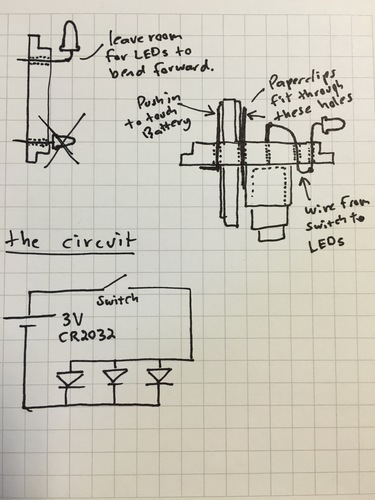 leave room
for LEDs to
bend forward.
Push in
to touch
Battery
Paperclips
fit through
these holes
wire from
switch to
LEDs
the circuit
Switch
3V
CR2032